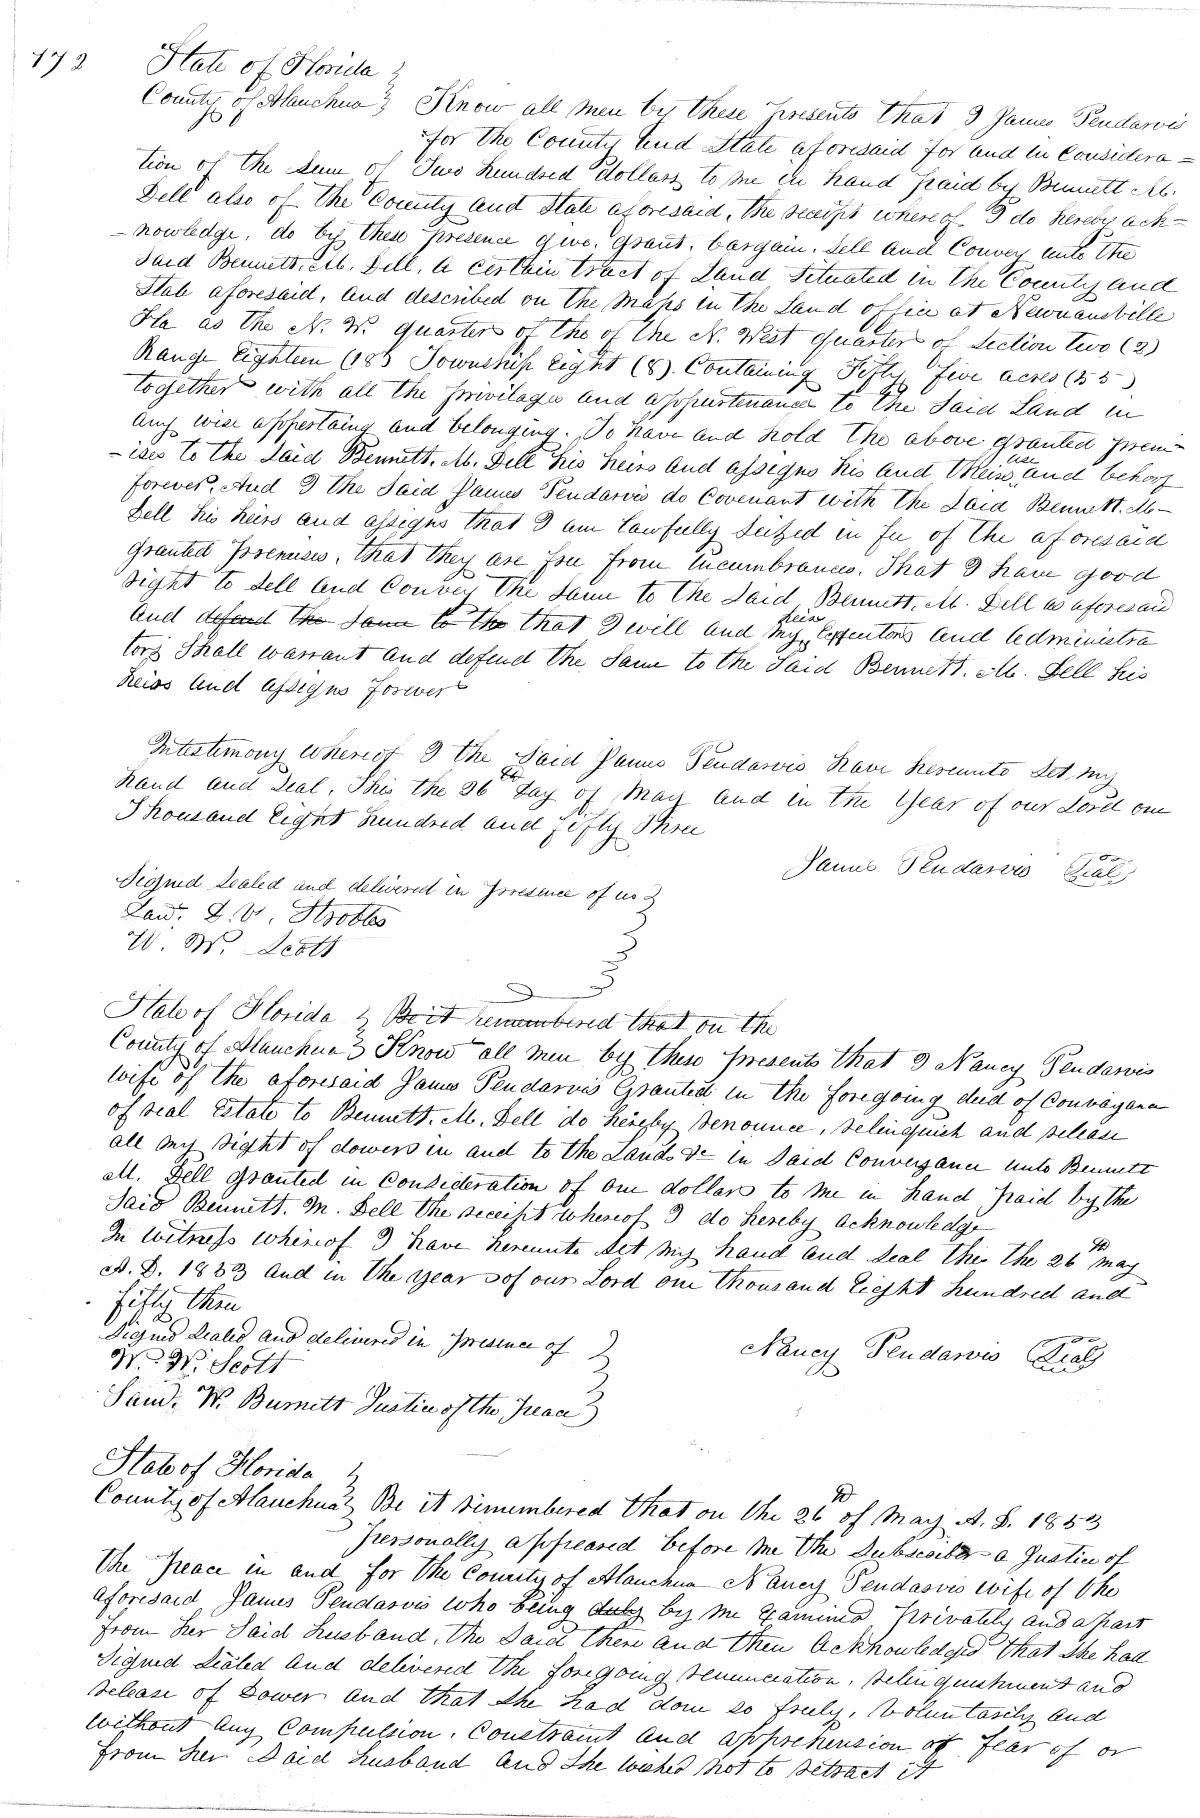 172
State of Florida }
County of Alauchua } Know all men by these presents that I James Pendarvis
for the County and State aforesaid for and in considera=
tion of the sum of Two hundred dollars to me in hand paid by Bennett M.
Dell also of the County and State aforesaid, the receipt whereof I do hereby ack=
-nowledge, do by these presence give, grant, bargain, sell and Convey unto the
said Bennett. M. Dell, a certain tract of Land situated in the County and
State aforesaid, and described on the maps in the Land office at Newnansville
Fla as the N. W. quarter of the of the N. West quarter of Section two (2)
Range Eighteen (18) Township Eight (8). Containing Fifty five acres (55)
together with all the privilages and appurtenances to the said Land in
any wise appertaing and belonging. To have and hold the above granted prem-
-ises to the said Bennett. M. Dell his heirs and assigns his and theirs use and behoof
forever, And I the said James Pendarvis do covenant with the said Bennett. M-
Dell his heirs and assigns that I am lawfully seized in fee of the aforesaid
granted premises, that they are free from incumbrances. That I have good
right to sell and convey the same to the said Bennett. M. Dell as aforesaid
and defend the same to the that I will and my heirs Executors and Administra
tors shall warrant and defend the same to the said Bennett. M. Dell his
heirs and assigns forever
Intestimony whereof I the said James Pendarvis have hereunto set my
hand and seal, This the 26th day of May and in the Year of our Lord one
Thousand Eight hundred and fifty three
James Pendarvis Seal
Signed sealed and delivered in presence of us }
L. V. Strobles
W. W. Scott
State of Florida } Be it remembered that on the
County of Alauchua } Know all men by these presents that I Nancy Pendarvis
wife of the aforesaid James Pendarvis Granted in the foregoing deed of Convayance
of real Estate to Bennett. M. Dell do hereby renounce, relinquish and release
all my right of dowers in and to the Lands &c in said Conveyance unto Bennett
M. Dell granted in consideration of one dollar to me in hand paid by the
said Bennett. M. Dell the receipt whereof I do hereby acknowledge
In witness whereof I have hereunto set my hand and seal this the 26th may
A. D. 1853 and in the year of our Lord one thousand Eight hundred and
fifty three
Signed sealed and delivered in presence of }
Nancy Pendarvis Seal
W. W. Scott
Saml. W. Burnett Justice of the Peace }
State of Florida }
County of Alauchua } Be it rimembered that on the 26th of May A. D. 1853
personally appeared before me the Subscriber a Justice of
the Peace in and for the County of Alauchua Nancy Pendarvis wife of the
aforesaid James Pendarvis who being duly by me Examined privately and apart
from her said husband, the said there and then acknowledged that she had
signed sealed and delivered the foregoing renunciation, relinquishment and
release of Dower and that she had done so freely, voluntarily and
without any compulsion, constraint and apprehension of fear of or
from her said husband and she wished not to retract it